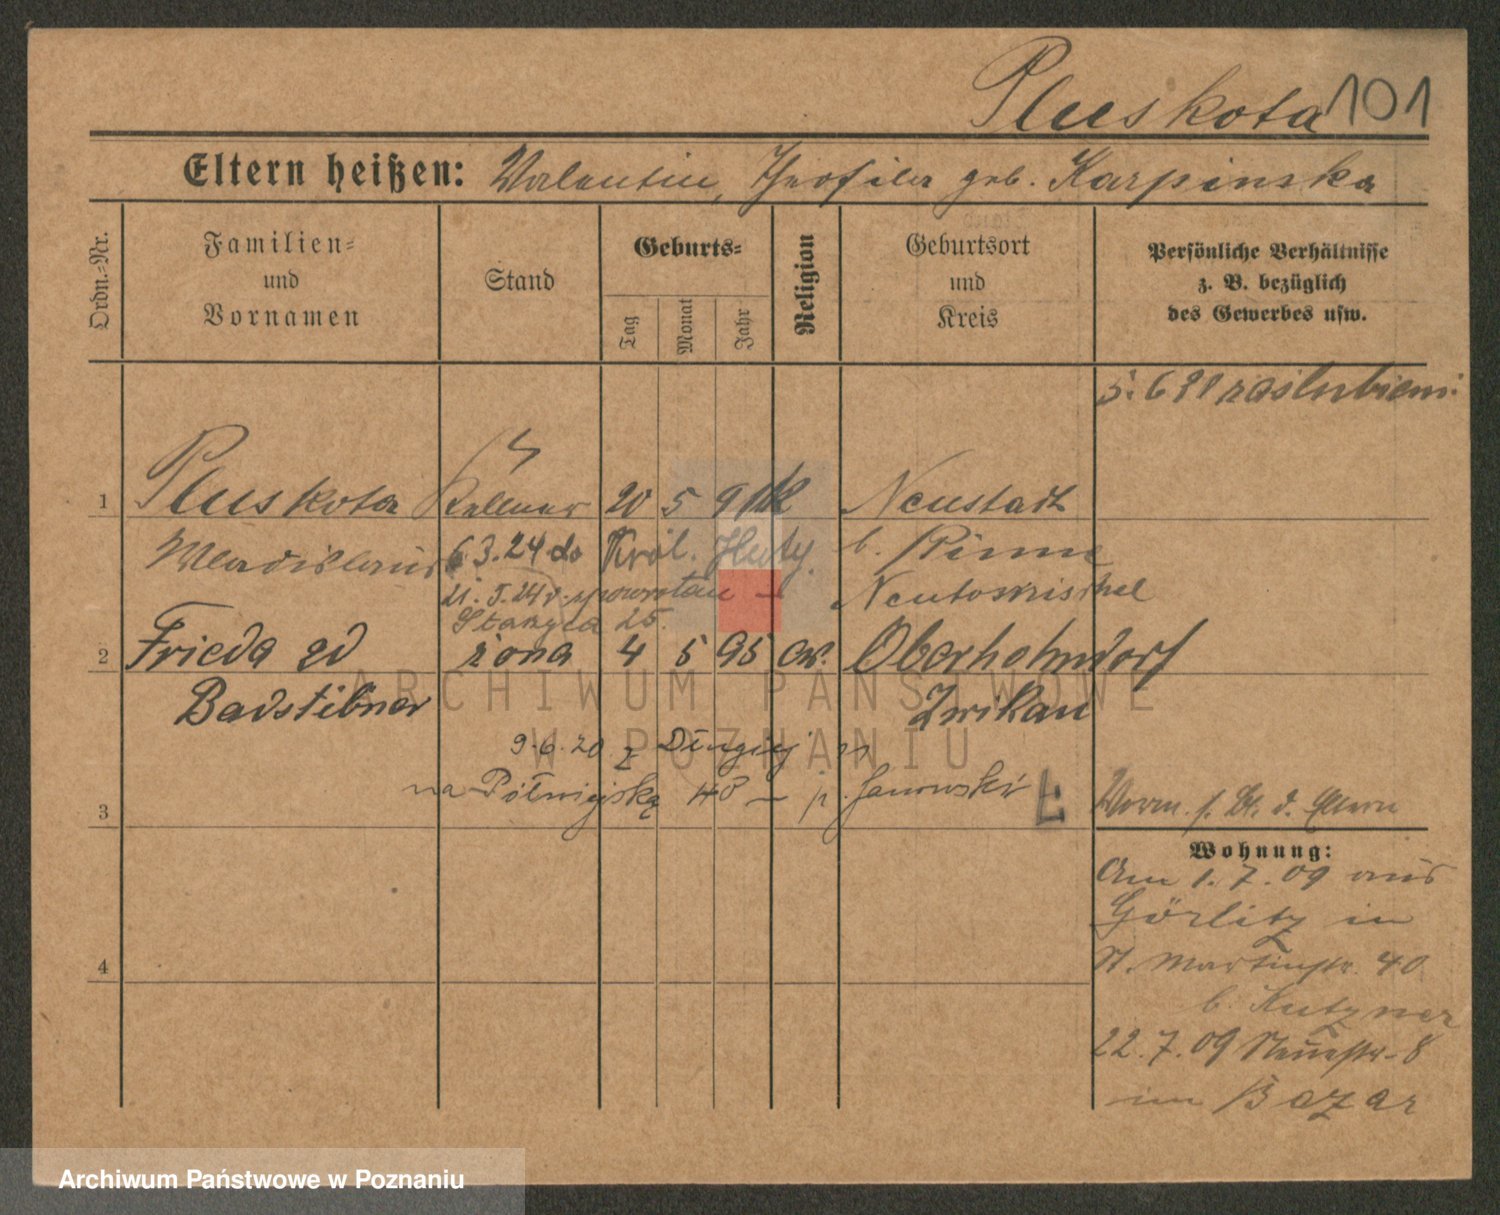 Pluskota 101
Eltern heißen: Valentin, Theofila geb. Karpinska
Ordn.-Nr.
Familien-
und
Vornamen
Stand
Geburts-
Tag
Monat
Jahr
Religion
Geburtsort
und
Kreis
Persönliche Verhältnisse
z. B. bezüglich
des Gewerbes usw.
zaślubieni
1 Pluskota Kellner 20 5 91 K Neustadt
Wladislaus 6.3.24 do Król. Huty. b. Pinne
21. 5. 24 z powrotem Neutomischel
25.
2 Frieda zd żona 4 5 95 ew. Oberhohndorf
Badstibner Zwikau
9.6.20 z
na Półwiejską 48 – p. Janowski
3
4
Wohnung:
Am 1.7.09 aus
Görlitz in
St. Martinstr. 40
b. Kutzner
22.7.09 Neuestr. 8
im Bazar
ARCHIWUM PAŃSTWOWE
W POZNANIU
Archiwum Państwowe w Poznaniu